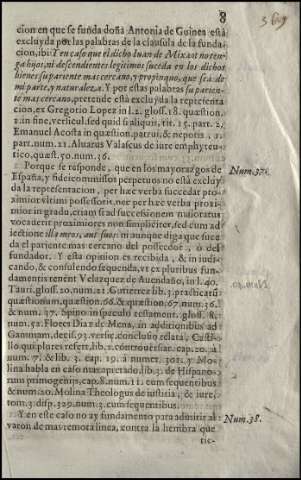 8
cion en que se funda doña Antonia de Guinea está
excluyda por las palabras de la clausula de la funda-
cion, ibi: Y en caso que el dicho Iuan de Mixaot no ten-
ga hijos, ni descendientes legitimos suceda en los dichos
bienes su pariente mas cercano, y propinquo, que sea de
mi parte, y naturaleza. Y por estas palabras su parien-
te mas cercano, pretende está excluyda la representa-
cion, ex Gregorio Lopez in l. 2. gloss. 18. question.
2. in fine, versicul. sed quid si aliquis, tit. 15. part. 2,
Emanuel Acosta in question. patrui, & nepotis, 2.
part. num. 21. Aluarus Valascus de iure emphyteu-
tico, quæst. 50. num. 36.
Porque se responde, que en los mayorazgos de
España, y fideicommissos perpetuos no está exclu-
da la representacion, per hæc verba succedat pro-
ximior vltimi possessoris, nec per hæc verba proxi-
mior in gradu, etiam si ad successionem maioratus
vocaderit proximiores non simpliciter, sed cum ad
iectione illi meos, aut sui: ni aunque diga que suce
da el pariente mas cercano del posseedor, ò del
fundador. Y esta opinion es recibida, & in iudi-
cando, & consulendo sequenda, vt ex pluribus fun-
damentis tenent Velazquez de Auendaño, in l. 40.
Tauri, gloss. 20. num. 21. Gutierrez lib. 3. practicarũ
quæstionum, quæstion. 66. & quæstion. 67. num. 36.
& num. 37. Spino in speculo testament. gloss. 8.
num. 52. Flores Diaz de Mena, in additionibus ad
Gammam, decis. 93. versic. conclusio relata, Casti-
llo qui plures refert, lib. 2. controuersiar. cap. 20. à
num. 7. & lib. 3. cap. 19. à numer. 302. y Mo-
lina habla en caso mas apretado, lib. 3. de Hispano-
rum primogenijs, cap. 8. num. 11. cum sequentibus
& num. 20. Molina Theologus de iustitia, & iure,
tom. 3. disp. 629. num. 3. cum sequentibus.
Y en este caso no ay fundamento para admitir al
varon de mas remota linea, contra la hembra que
tie-
Num. 37.
Num. 38.